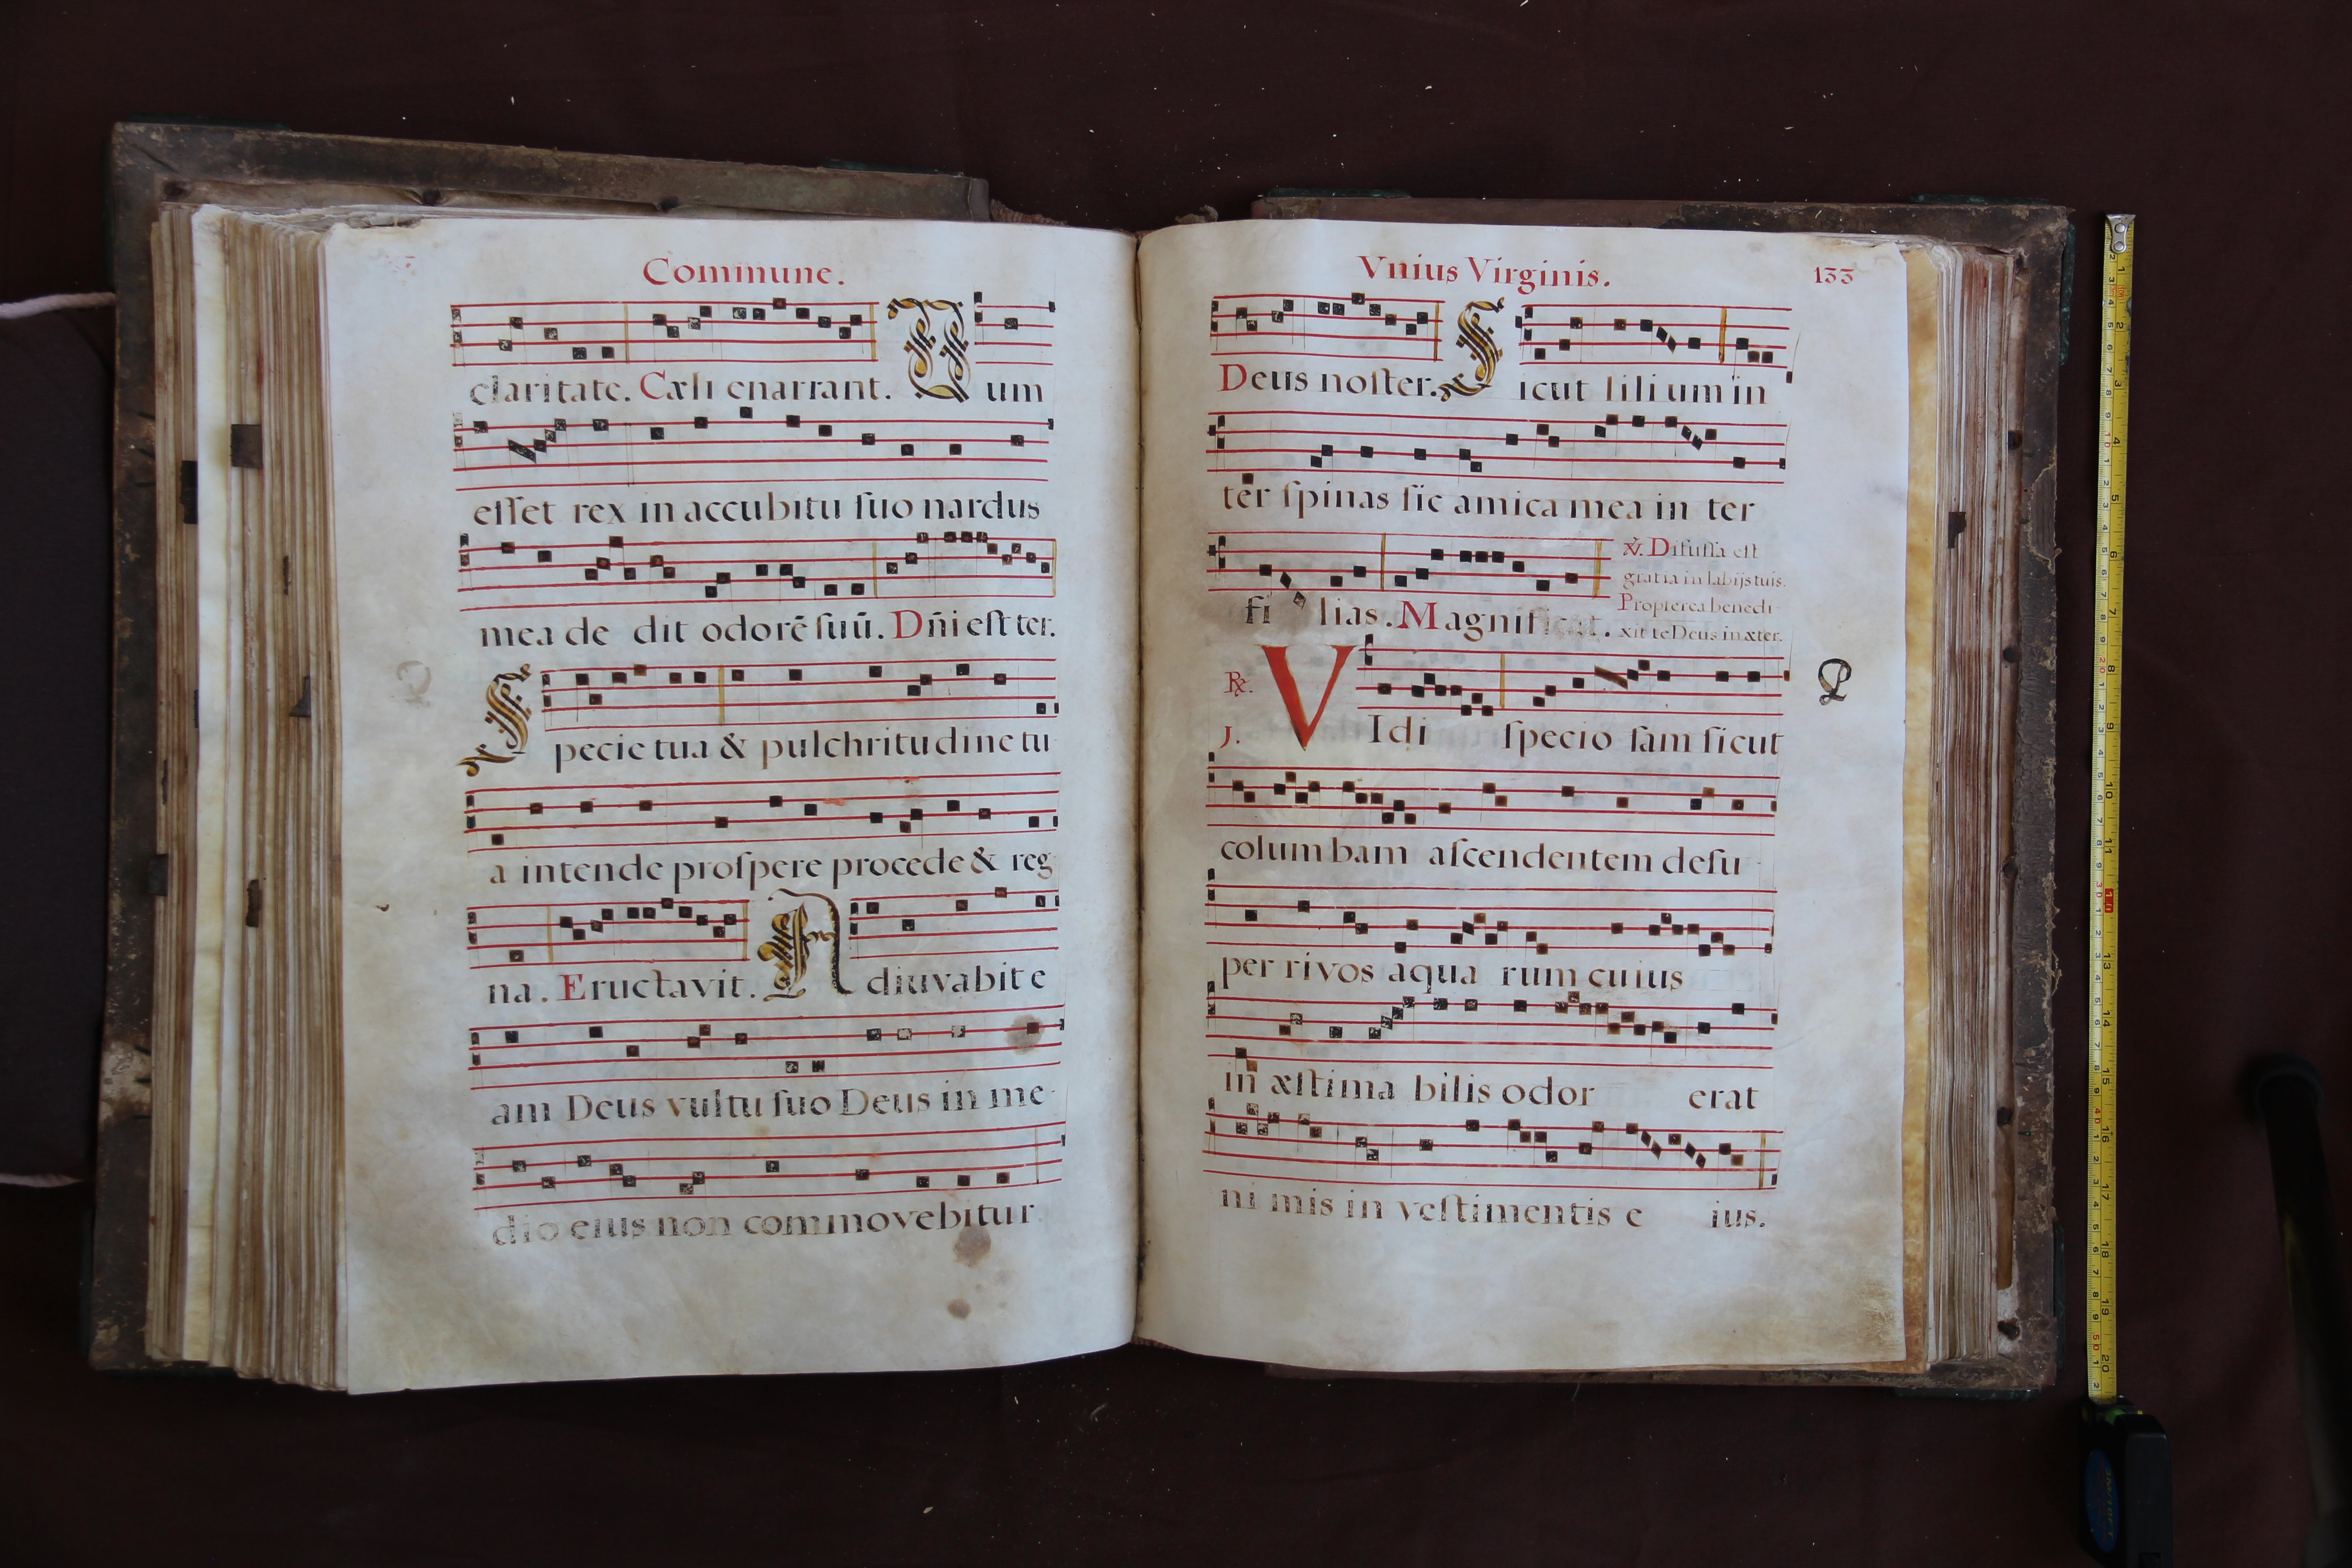 Commune.
claritate. Cæli enarrant. Dum
eſſet rex in accubitu ſuo nardus
mea de dit odorē ſuū. Dñi eſt ter.
Specie tua & pulchritudine tu
a intende proſpere procede & reg
na. Eructavit. Adiuvabit e
am Deus vultu ſuo Deus in me-
dio eius non commovebitur
Vnius Virginis. 133
Deus noſter. Sicut lilium in
ter ſpinas ſic amica mea in ter
fi lias. Magnificat.
℣. Difuſſa eſt
gratia in labijs tuis.
Propterea benedi-
xit te Deus in æter.
℟. VIdi ſpecio ſam ſicut
J.
columbam aſcendentem deſu-
per rivos aqua rum cuius
in æſtima bilis odor erat
ni mis in veſtimentis e ius.